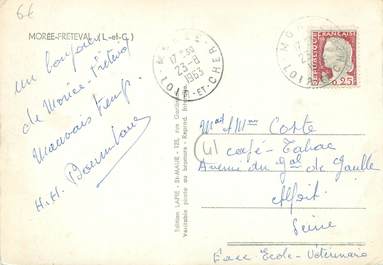 6f
MORÉE-FRÉTEVAL (L.-et-C.)
un bonjour
de Morée-Fréteval
Mauvais temps.
H.H.
Edition LAPIE - St-MAUR - 125, rue
Véritable photo au bromure - Reprod. Interdite
MORÉE
17 H
23-8
1963
LOIR-ET-CHER
REPUBLIQUE FRANÇAISE
0,25
Mad et Mme Coste
41
café-Tabac
Avenue du Gal de Gaulle
Alfort
Seine
Face Ecole-Vétérinaire